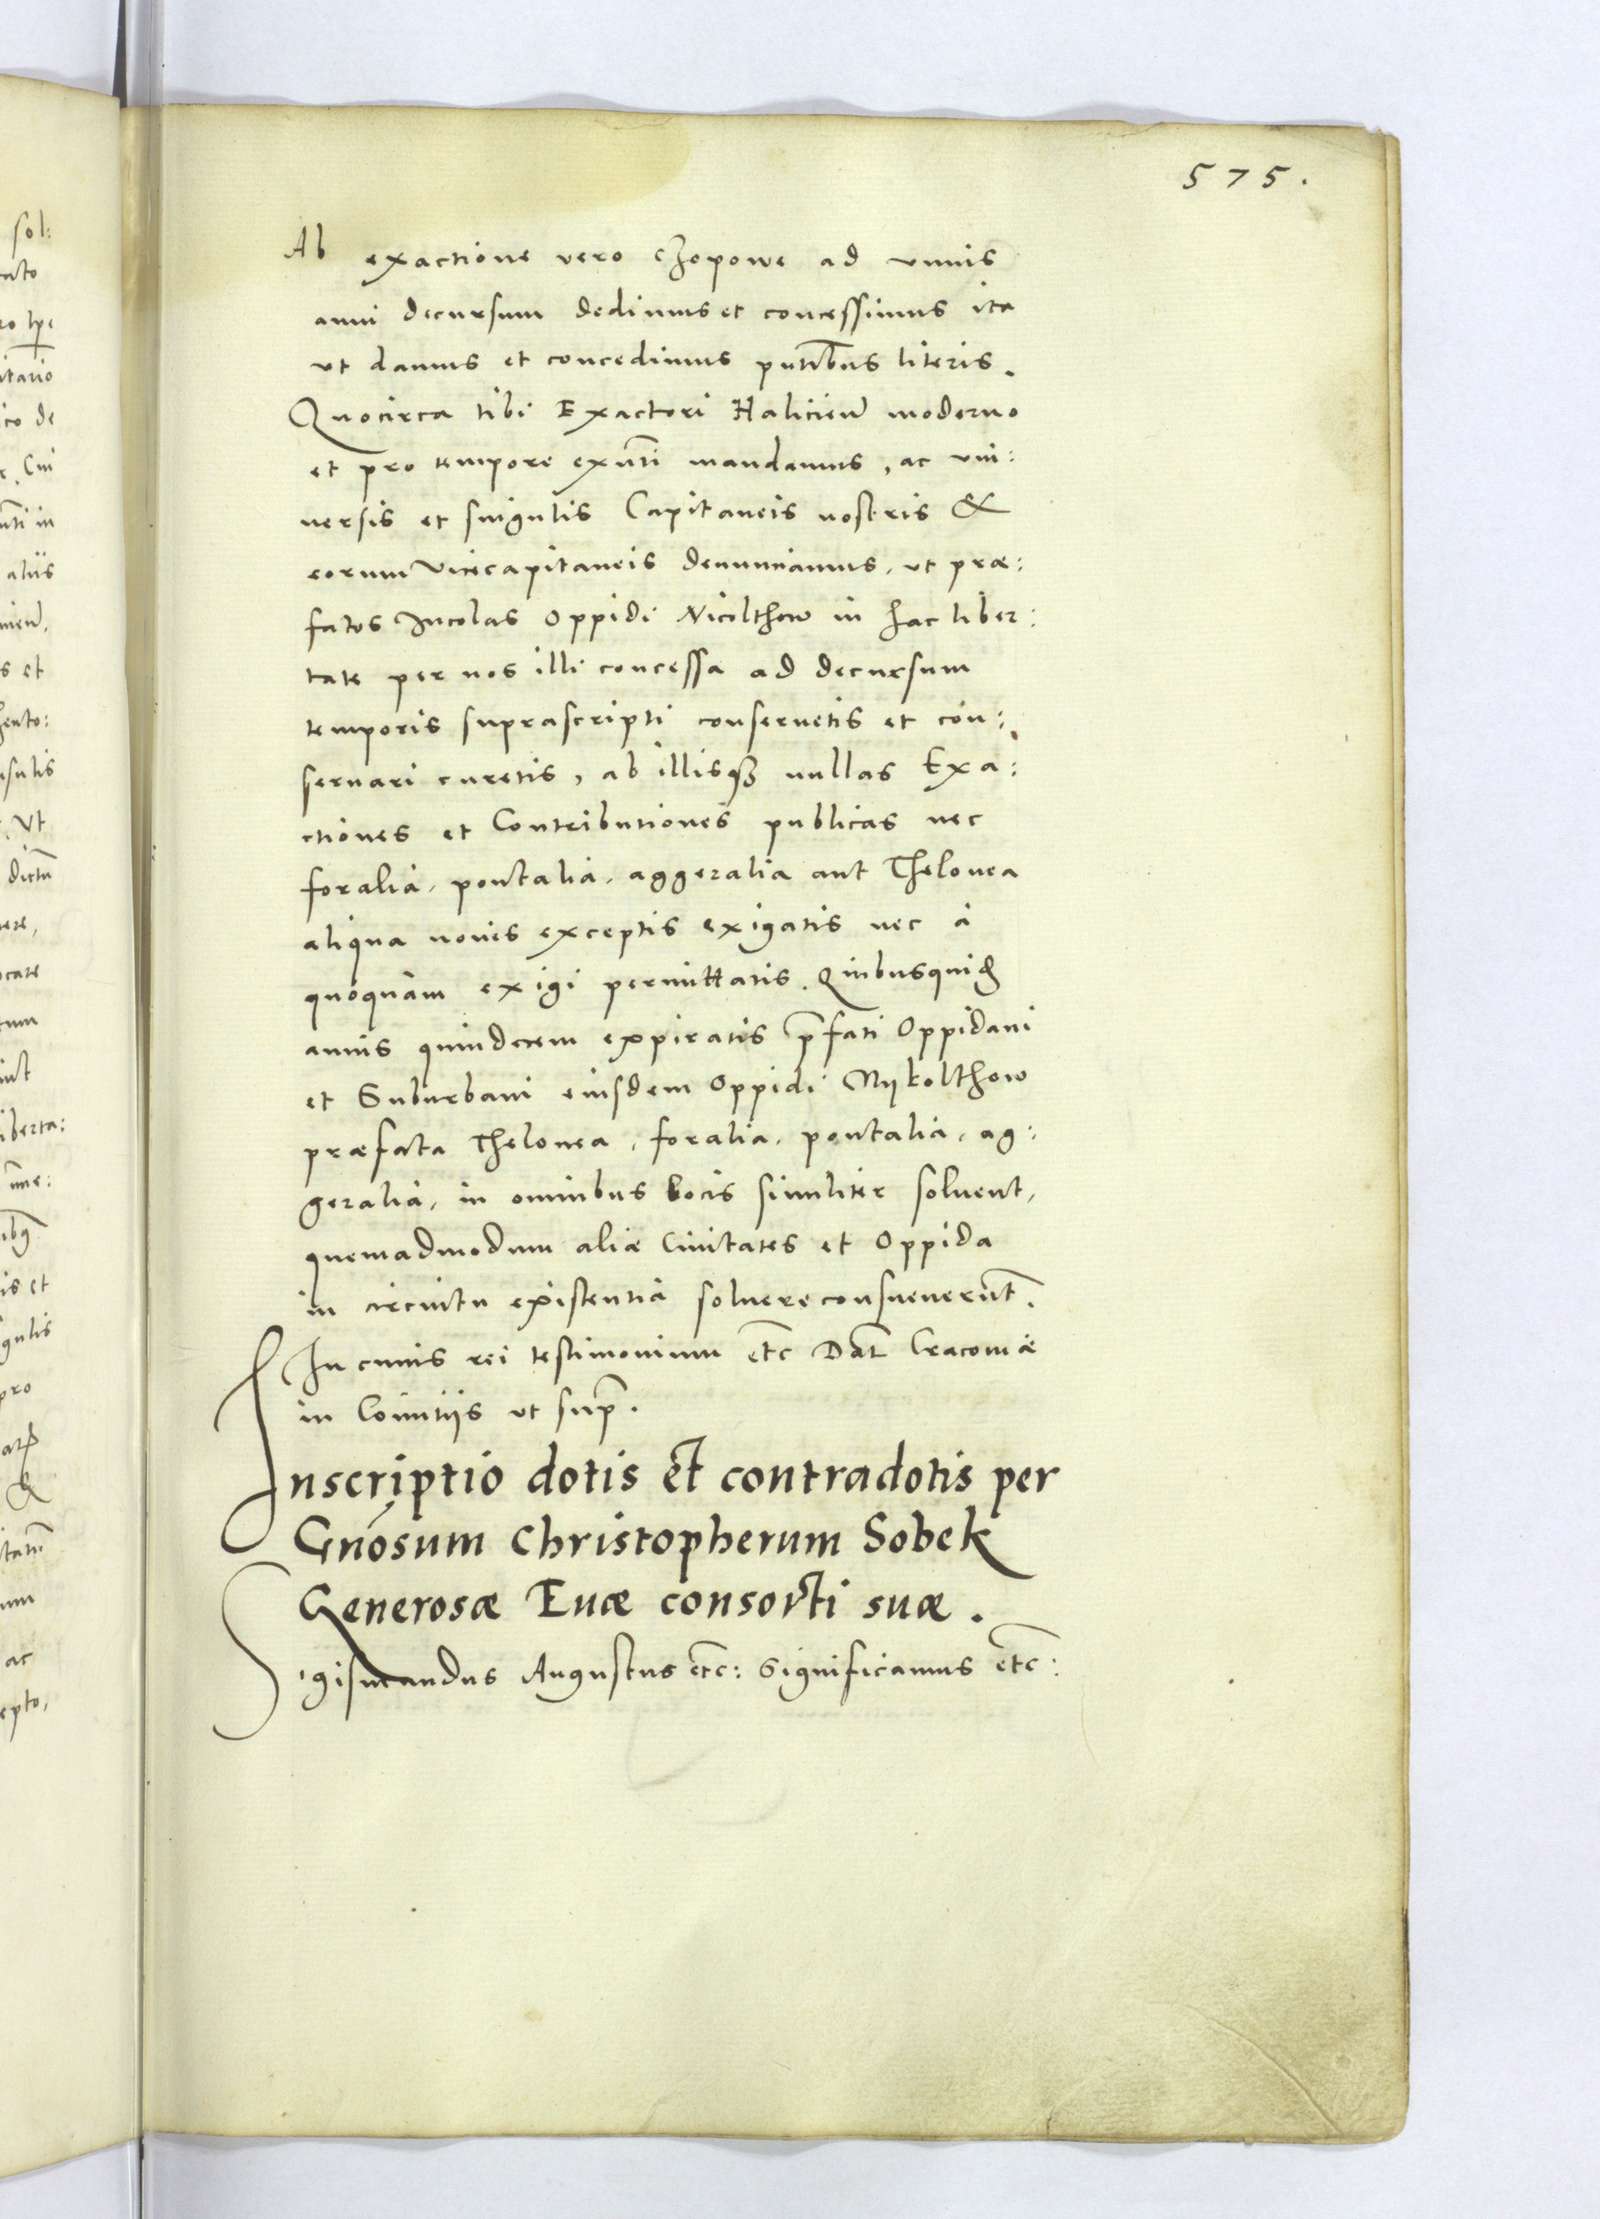 575.
Ab exactione vero czopowe ad unius
anni decursum dedimus et concessimus ita
ut damus et concedimus pntibus literis.
Quocirca tibi Exactori Halicien moderno
et pro tempore exnti mandamus, ac uni:
versis et singulis Capitaneis nostris &
eorum Vicecapitaneis denunciamus, ut præ:
fatos Incolas Oppidi Nicolthow in hac liber:
tate per nos illi concessa ad decursum
temporis suprascripti conservetis et con:
servari curetis, ab illisq3 nullas Exa:
ctiones et Contributiones publicas nec
foralia, pontalia, aggeralia aut Thelonea
aliqua novis exceptis exigatis nec à
quoquam exigi permittatis. Quibusquid
annis quindecem expiratis pfati Oppidani
et Suburbani eiusdem Oppidi Mykolthow
præfata Thelonea, foralia, pontalia, ag:
geralia, in omnibus locis similiter solvent,
quemadmodum aliæ Civitates et Oppida
in circuitu existentia solvere consueverunt.
In cuius rei testimonium etc Dat Cracoviæ
in Comitiis ut sup.
Inscriptio dotis et contradotis per
Gnosum Christopherum Sobek
Generosæ Evæ consorti suæ.
Sigismundus Augustus etc: Significamus etc:
sol:
itario
co de
Cui
nti in
aliis
s et
Ut
dictu
iberta:
is et
gulis
pro
&
ac
epto,